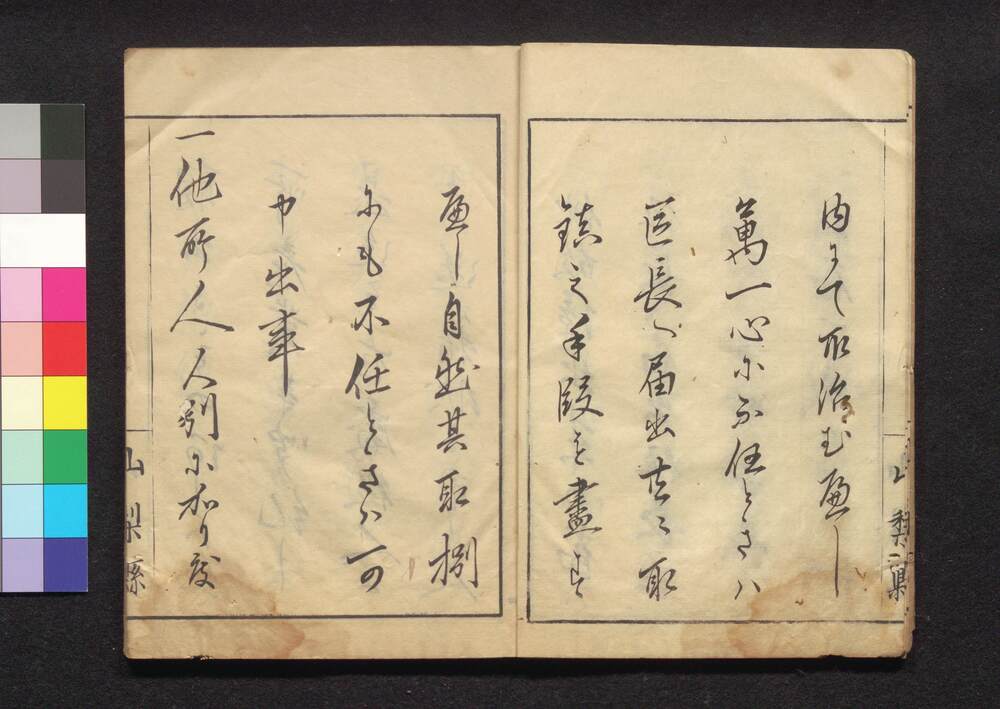 内にて取治むへし
萬一心に不任ときハ
区長へ届出共ニ取
鎮之手段を盡す
へし自然其取捌
にも不任ときハ可
申出事
一他所人人別に加り度
山梨縣
山梨縣